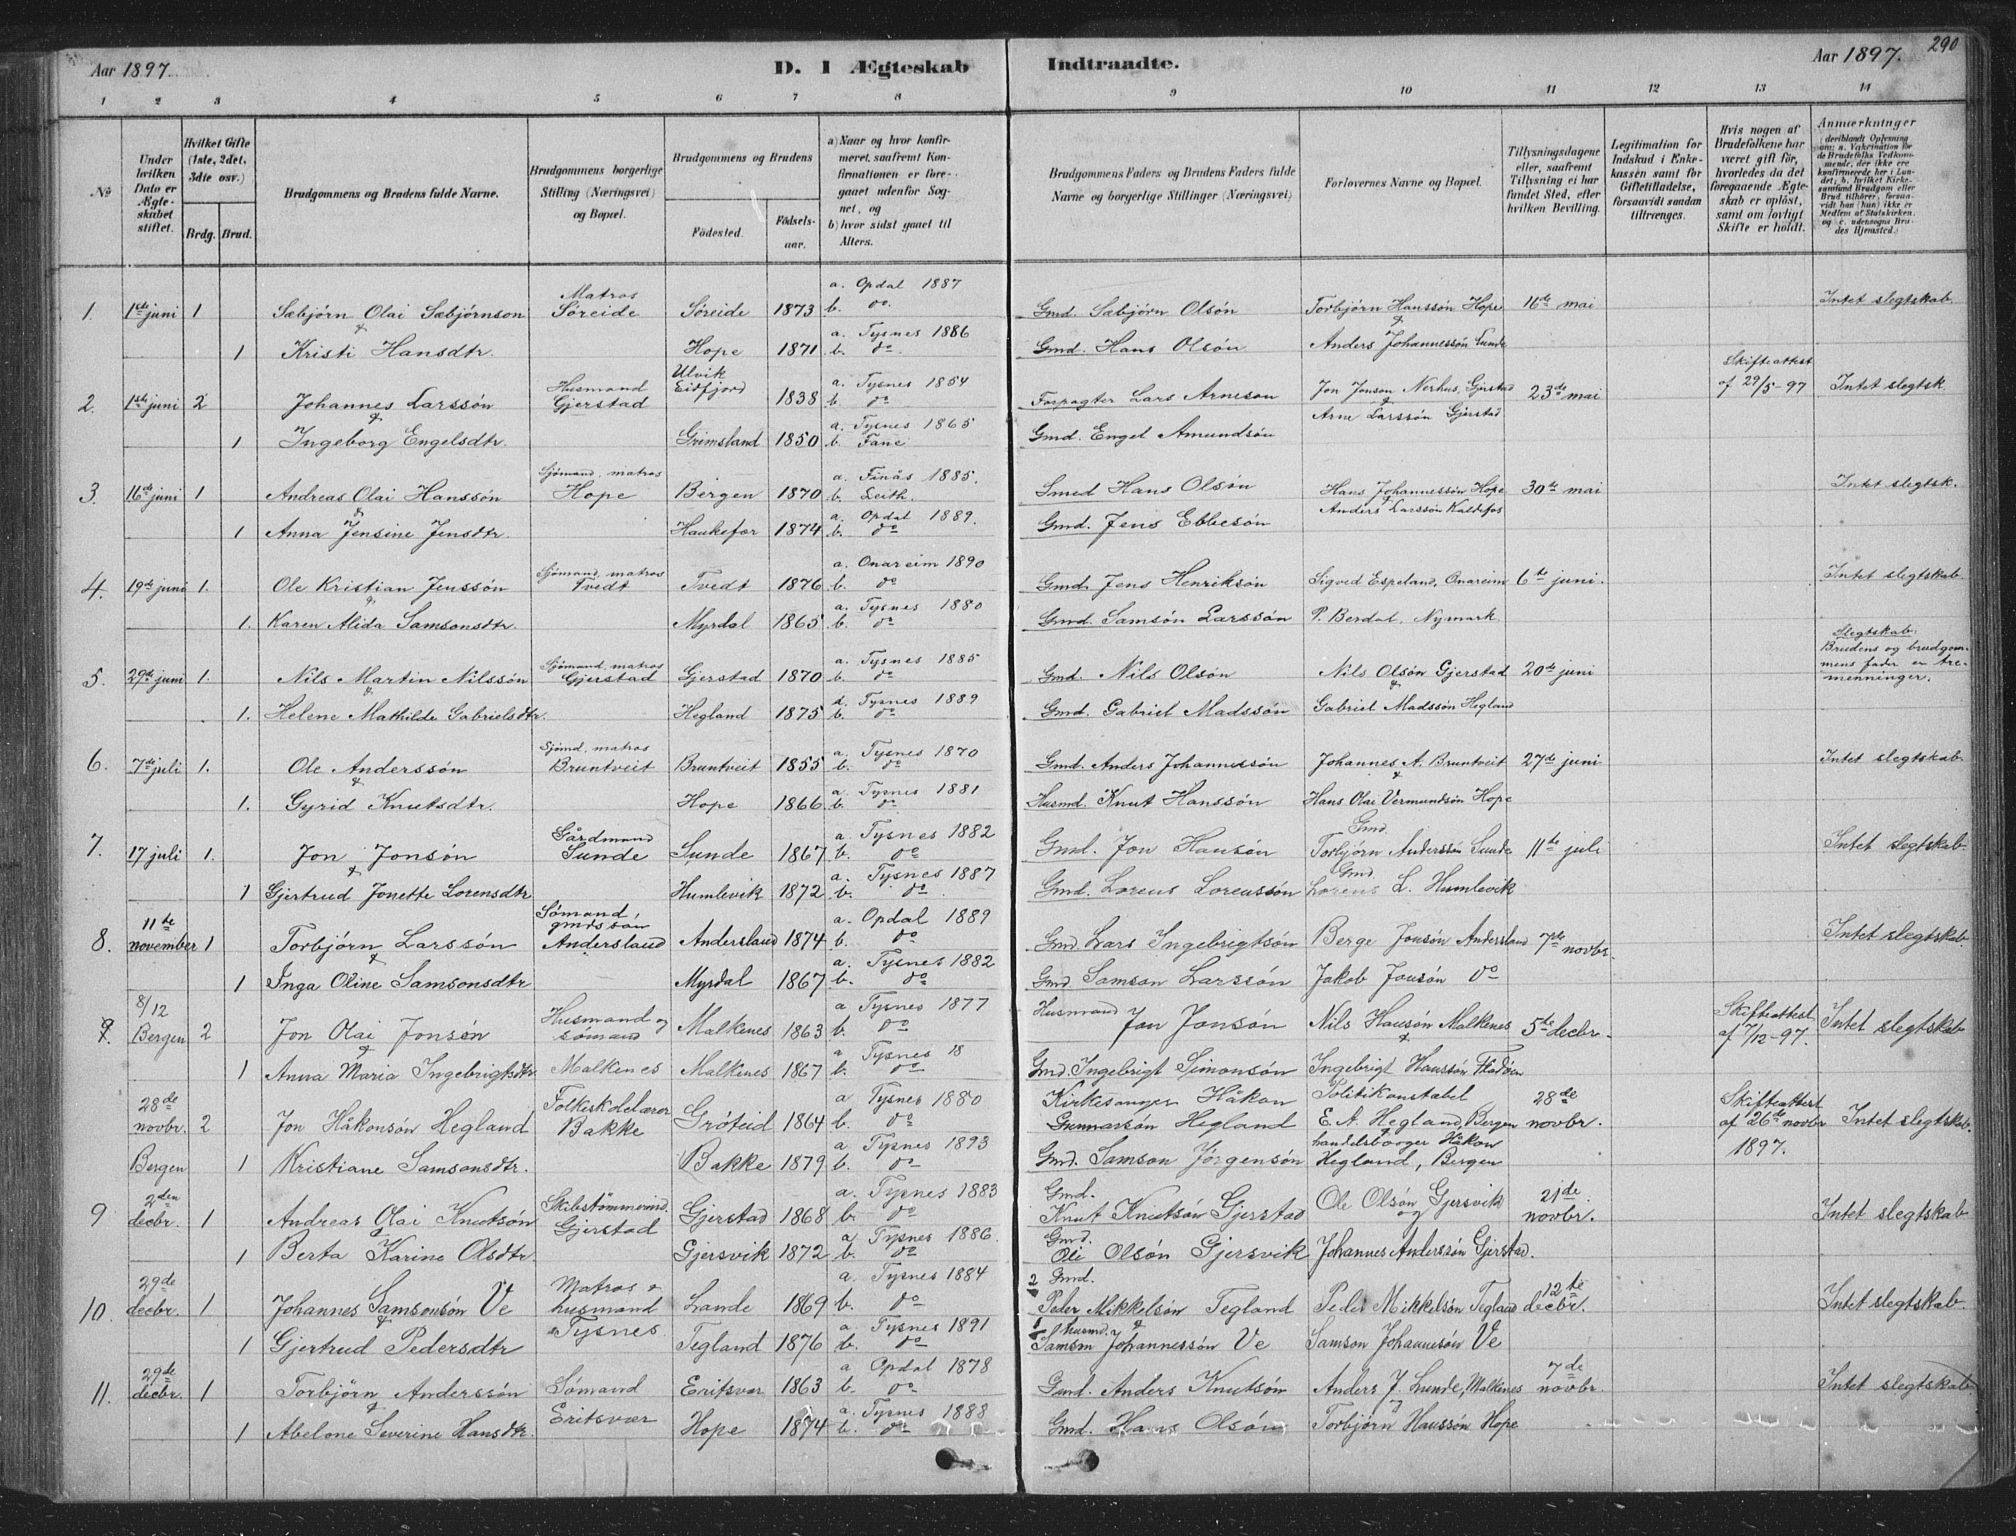 290
Aar 1897. D. 1 Ægteskab Indtraadte. Aar 1897.
1 2 3 4 5 6 7 8 9 10 11 12 13 14
No
Under hvilken Dato er Ægteskabet stiftet.
Hvilket Gifte (1ste, 2det, 3die osv.)
Brdg. Brud.
Brudgommens og Brudens fulde Navne.
Brudgommens borgerlige Stilling (Næringsvei) og Bopæl.
Brudgommens og Brudens
Fødested. Fødselsaar.
a) Naar og hvor konfirmeret, saafremt Konfirmationen er foregaaet udenfor Sognet, og
b) hvor sidst gaaet til Alters.
Brudgommens Faders og Brudens Faders fulde Navne og borgerlige Stillinger (Næringsvei)
Forlovernes Navne og Bopæl.
Tillysningsdagene eller, saafremt Tillysning ei har fundet Sted, efter hvilken Bevilling.
Legitimation for Indskud i Enkekassen samt for Giftetilladelse, forsaavidt saadan tiltrænges.
Hvis nogen af Brudefolkene har været gift før, hvorledes da det foregaaende Ægteskab er opløst, samt om lovligt Skifte er holdt.
Anmærkninger
deriblandt Oplysning om: a. Vakcination for de Brudefolks Vedkommende, der ikke ere konfirmerede her i Landet; b. hvilket Kirkesamfund Brudgom eller Brud tilhører, forsaavidt han (hun) ikke er Medlem af Statskirken, og c. udensogns Brudes Hjemsted.)
1. 1ste juni 1 Sæbjørn Olai Sæbjørnson Matros Søreide Søreide 1873 a. Opdal 1887 b. do. Gmd. Sæbjørn Olsøn Torbjørn Hanssøn Hope 16de mai Intet slegtskab.
& 1 Kristi Hansdtr. Hope 1871 a. Tysnes 1886 b. do. Gmd. Hans Olsøn & Anders Johannessøn Lunde
2. 1ste juni 2 Johannes Larssøn Husmand Gjerstad Ulvik Eidfjord 1838 a. Tysnes 1854 b. do Forpagter Lars Arneson Jon Jonson Nerhus, Gjerstad 23de mai Skifteattest af 29/5-97 Intet slegtsk.
& 1 Ingeborg Engelsdtr. Grimsland 1850 a. Tysnes 1865 b. Fane Gmd. Engel Amundsøn & Arne Larssøn Gjerstad
3. 16de juni 1 Andreas Olai Hanssøn Sjømand, matros Hope Bergen 1870 a. Finås 1885. b. Leith. Smed Hans Olsøn Hans Johannessøn Hope 30te mai Intet slegtsk.
& 1 Anna Jensine Jensdtr. Haukefær 1874 a. Opdal 1889. b. do Gmd. Jens Ebbesøn & Anders Larssøn Kaldefos
4. 19de juni 1. Ole Kristian Jenssøn Sjømand, matros Tvedt Tvedt 1876 a. Onareim 1890 b. do Gmd. Jens Henriksøn Sigved Espeland, Onareim 6te juni. Intet slegtskab
& 1. Karen Alida Samsonsdtr. Myrdal 1865 a. Tysnes 1880 b. do Gmd. Samsøn Larssøn P. Berdal, Nymark
5. 29de juni 1. Nils Martin Nilssøn Sjømand, matros Gjerstad Gjerstad 1870 a. Tysnes 1885 b. do Gmd. Nils Olsøn Nils Olsøn Gjerstad 20de juni Slegtskab. Brudens og brudgommens fader er tremenninger.
& 1. Helene Mathilde Gabrielsdtr. Hegland 1875 a. Tysnes 1889 b. do Gmd. Gabriel Madssøn & Gabriel Madssøn Hegland
6. 7de juli 1. Ole Anderssøn Sjømd, matros Bruntveit Bruntveit 1855 a. Tysnes 1870 b. do Gmd. Anders Johannessøn Johannes A. Bruntveit 27de juni Intet slegtskab
& 1. Gyrid Knutsdtr. Hope 1866 a. Tysnes 1881 b. do Husmd. Knut Hanssøn & Hans Olai Vermundsøn Hope
7. 17 juli 1. Jon Jonsøn Gårdmand Sunde Sunde 1867 a. Tysnes 1882 b. do Gmd. Jon Hansøn Gmd. Torbjørn Anderssøn Sunde 11te juli Intet slegtskab.
& 1 Gjertrud Jonette Lorensdtr Humlevik 1872 a. Tysnes 1887 b. do. Gmd. Lorens Lorenssøn Gmd. Lorens L. Humlevik
8. 11te november 1 Torbjørn Larssøn Sømand, gmdssøn Andersland Andersland 1874 a. Opdal 1889 b. do Gmd. Lars Ingebrigtsøn Berge Jonsøn Andersland 7de novbr. Intet slegtskab.
& 1 Inga Oline Samsonsdtr Myrdal 1867 a. Tysnes 1882 b. do Gmd Samson Larssøn Jakob Jonsøn do
9. 8/12 Bergen 2 Jon Olai Jonsøn Husmand og sømand Malkenes 1863 a Tysnes 1877 b. do Husmand Jon Jonsøn Nils Hansøn Malkenes 5te decbr. Skifteattest af 7/12-97. Intet slegtskab
& 1 Anna Maria Ingebrigtsdtr Malkenes Malkenes 1867 a Tysnes 18 b. do Gmd. Ingebrigt Simonsøn & Ingebrigt Hanssøn Fladøen
28de novbr. Bergen 2 Jon Håkonsøn Hegland Folkeskolelærer Bakke Grøteid 1864 a Tysnes 1880 b. do Kirkesanger Håkon Gunnarsøn Hegland Politikonstabel E. A. Hegland, Bergen 28de novbr. Skifteattest af 26de novbr 1897. Intet slegtskab.
1 Kristiane Samsonsdtr. Bakke 1879 a Tysnes 1893 b. do Gmd. Samson Jørgensøn & handelsborger Håkon Hegland, Bergen
9 2den decbr. 1 Andreas Olai Knutsøn Skibstømmermd. Gjerstad Gjerstad 1868 a. Tysnes 1883 b. do Gmd. Knut Knutsøn Gjerstad Ole Olsøn Gjersvik 21de novbr. Intet slegtskab
& 1 Berta Karine Olsdtr. Gjersvik 1872 a Tysnes 1886. b. do Gmd. Ole Olsøn Gjersvik og Johannes Anderssøn Gjerstad.
10. 29de decbr. 1 Johannes Samsonsøn Ve Matros & husmand Tysnes Lande 1869 a. Tysnes 1884 b. do 2 Gmd. Peder Mikkelsøn Tegland Peder Mikkelsøn Tegland 12te decbr. Intet slegtskab.
& 1 Gjertrud Pedersdtr Tegland 1876 a. Tysnes 1891 b. do 1 husmd. Samson Johannessøn Ve & Samson Johannesøn Ve
11. 29de decbr. 1 Torbjørn Anderssøn Sømand Eritsvær Eritsvær 1863 a Opdal 1878 b. do Gmd. Anders Knutsøn Anders J. Lunde, Malkenes 7de novbr. Intet slegtskab
& 1 Abelone Severine Hansdtr. Hope 1874 a. Tysnes 1888 b. do Gmd. Hans Olsøn & Torbjørn Hanssøn Hope